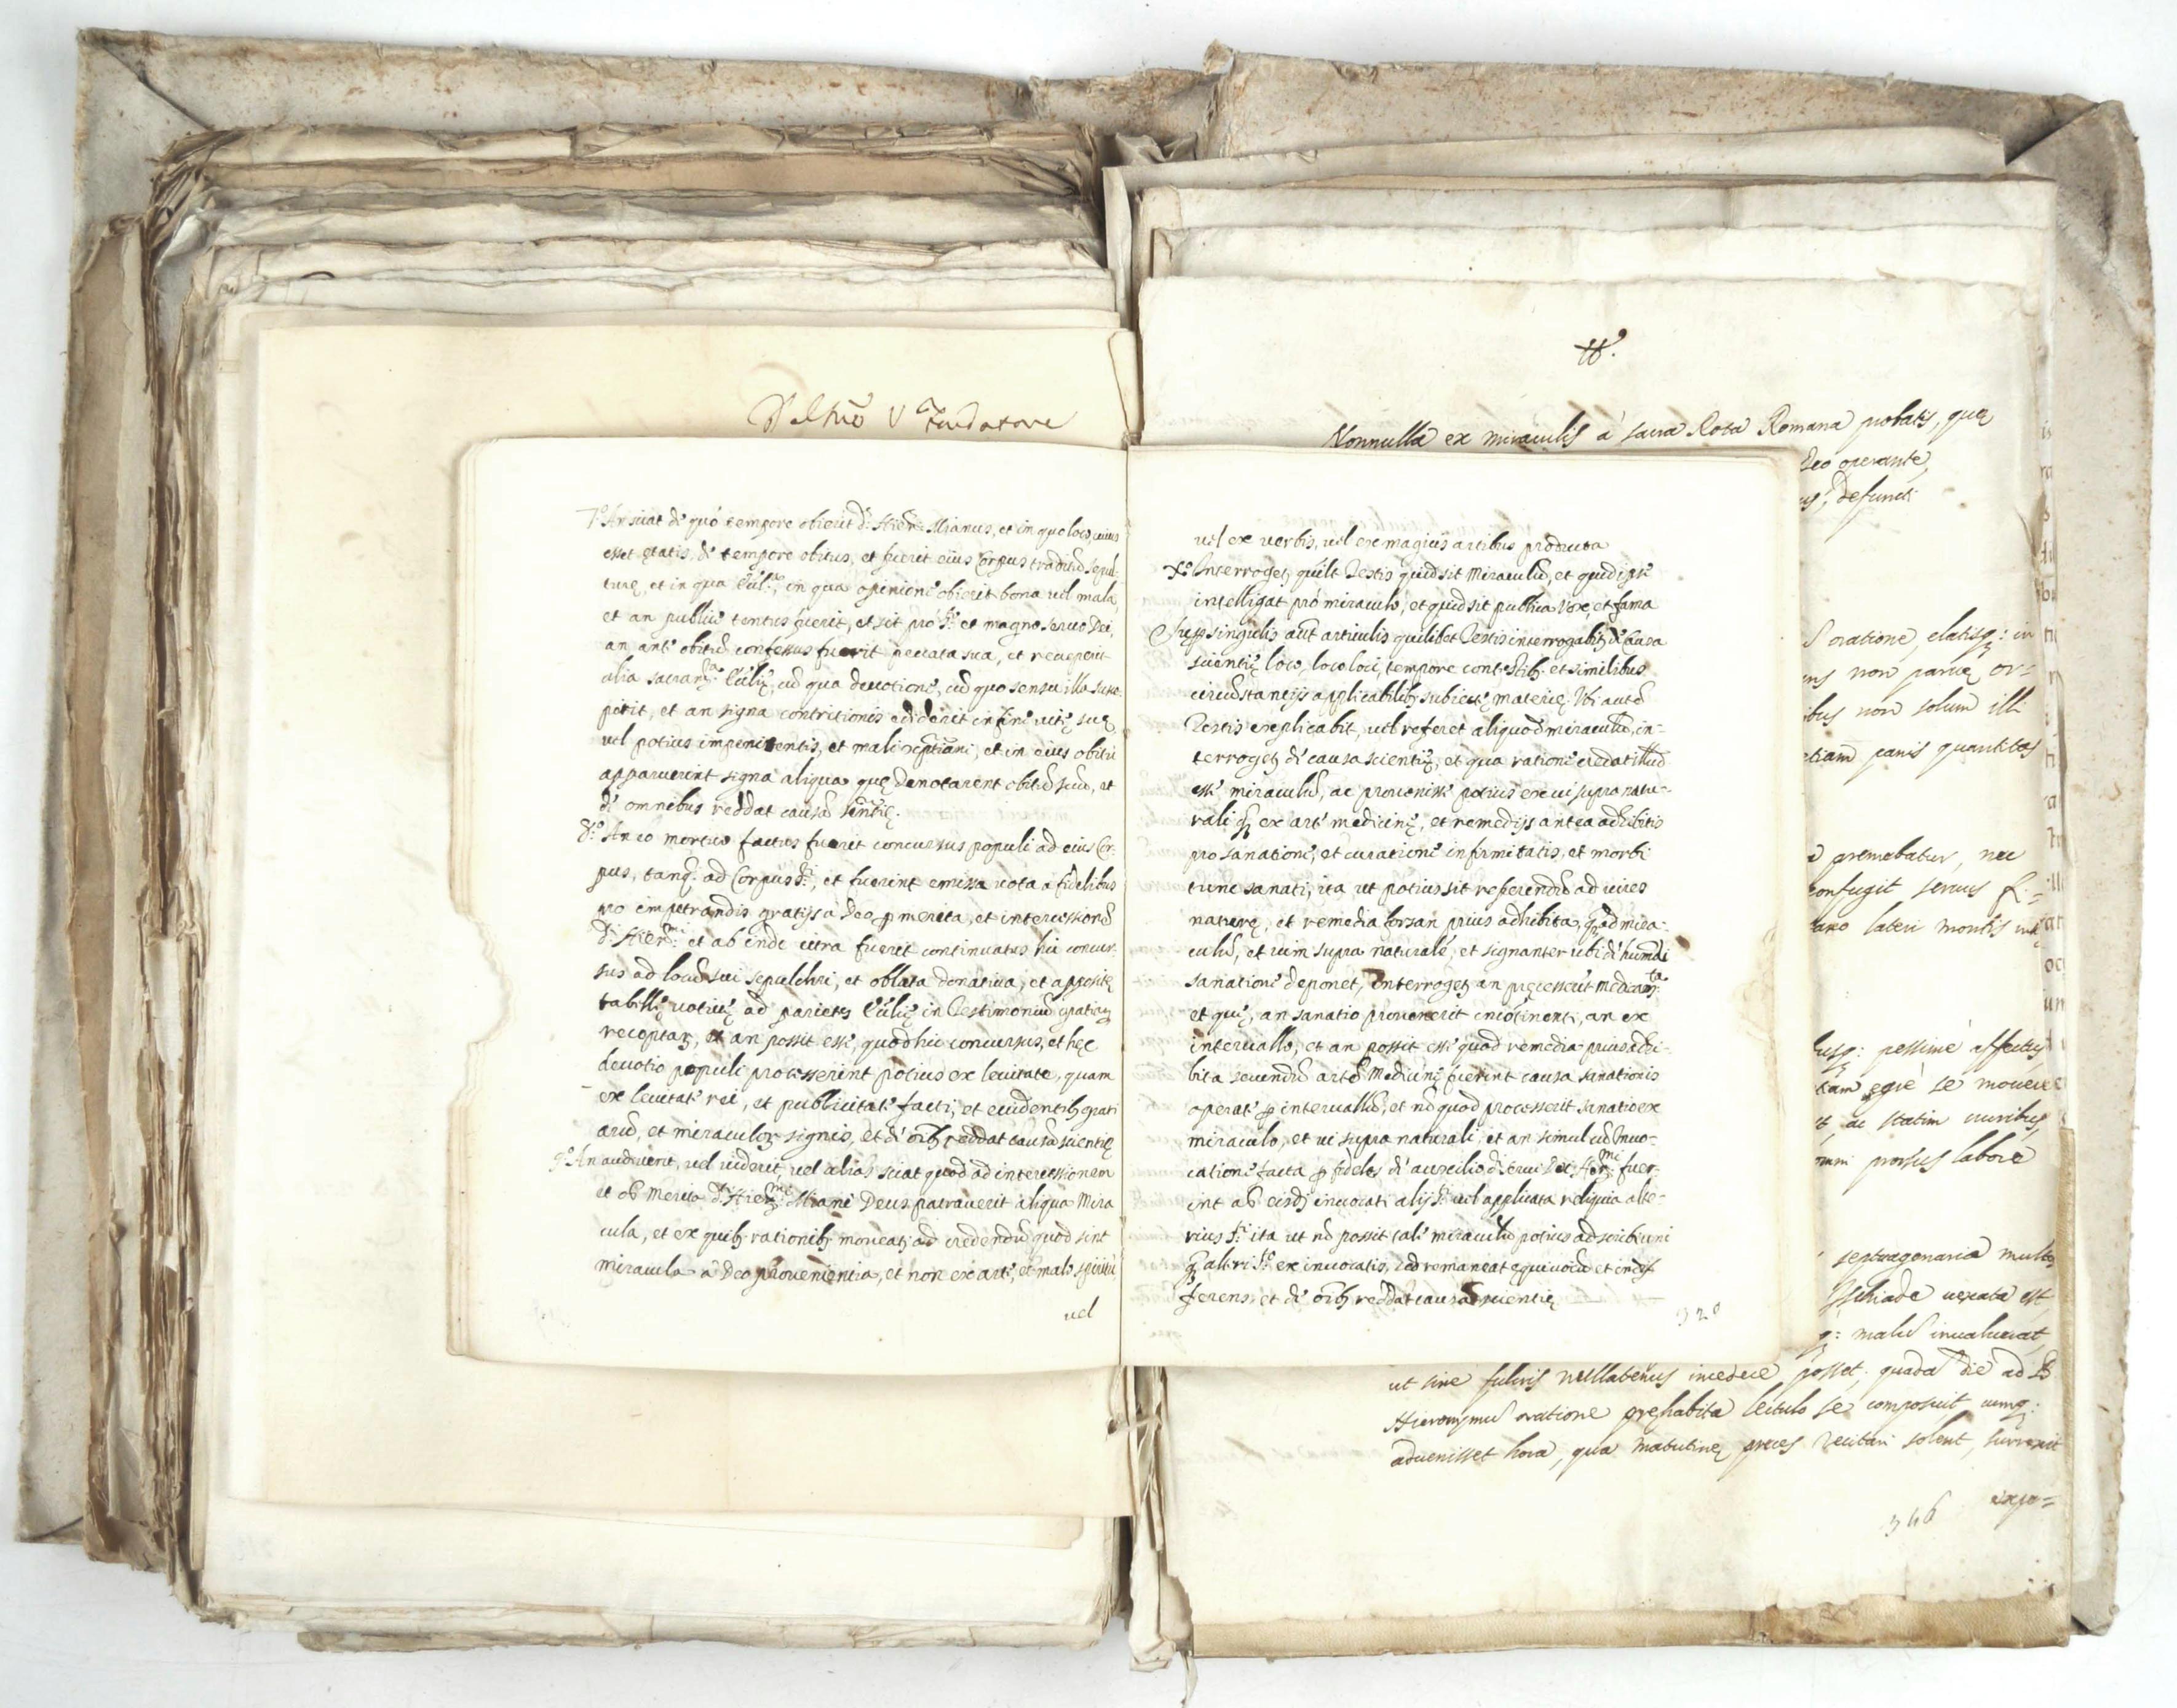 Del Nro V. Fundatore
7.o An sciat de quo tempore obierit d. Hier. Mianus, et in quo loco, cuius
esset ętatis de tempore obitus, et fuerit eius Corpus traditū sepul-
turę, et in qua Eccl.a, in qua opinione obierit bona vel mala,
et an publice tentus fuerit, et sit pro S.to et magno servo Dei,
an ante obitū confessus fuerit peccata sua, et receperit
alia sacram.ta Ecclię, cū qua devotione, cū quo sensu illa susce-
perit, et an signa contritionis ediderit in fine vitę suę
vel potius impenitentis, et mali xp̄tiani, et in eius obitu
apparuerint signa aliqua quę denotarent obitū suū, et
de omnibus reddat causā scientię.
8.o An eo mortuo factus fuerit concursus populi ad eius Cor-
pus, tanq. ad Corpus S.ti, et fuerint emissa vota a fidelibus
pro impetrandis gratijs a Deo p merita, et intercessionē
d. Hier.mi et ab inde citra fuerit continuatus hic concur-
sus ad locū sui sepulchri, et oblata donativa, et appositę
tabellę votivę ad parietes Ecclię in Testimoniū gratiarū
receptarū, et an possit esse, quod hic concursus, et hęc
devotio populi processerint potius ex levitate, quam
ex levitate rei, et publicitate facti, et evidentib grati
arū, et miraculorū signis, et de oīb reddat causā scientię
9.o An audiverit, vel viderit, vel alias sciat quod ad intercessionem
et ob merita d. Hier.mi Miani Deus patraverit aliqua Mira
cula, et ex quib rationib moveatur ad credendū quod sint
miracula a Deo provenientia, et non ex arte, et malo spiritu
vel
vel ex verbis, vel ex magicis artibus producta
X.o Interrogetur quilt Testis quid sit Miraculū, et quid ipse
intelligat pro miraculo, et quid sit publica vox, et fama
Super singulis aūt articulis quilibet Testis interrogabitur de Causa
scientię loco, loco loci, tempore contestib. et similibus
circūstantijs applicabilib subiectę materię. Ubi autē
Testis explicabit, vel referet aliquod miraculū, in-
terrogetur de causa scientię, et qua ratione credat illud
esse miraculū, ac provenisse potius ex vi supra natu-
rali q. ex arte medicinę, et remedijs antea adhibitis
pro sanatione, et curatione infirmitatis, et morbi
tunc sanati, ita ut potius sit referendū ad vires
naturę, et remedia forsan prius adhibita, q. ad mira-
culū, et vim supra naturale, et signanter ubi de humāi
sanatione deponet, Interrogetur an pręcesserit medicam.ta
et quę, an sanatio provenerit incōtinenti, an ex
intervallo, et an possit esse quod remedia prius adhi-
bita secundū artē Medicinę fuerint causa sanationis
operatę p intervallū, et nō quod processerit sanatio ex
miraculo, et vi supra naturali, et an simul cū Invo-
catione facta p fideles de auxilio d. servi Dei Hier.mi fuer-
int ab eisdē invocati alij S.ti vel applicata reliquia alte-
rius S.ti ita ut nō possit tale miraculū potius adscribi uni
q. alteri S.to ex invocatis, sed remaneat equivocū et indif
ferens, et de oīb reddat causā scientię
320
Nonnulla ex miraculis à sacra Rota Romana probatis, quę
Deo operante,
defuncti
oratione, elatisq: in
non parvę or-
ibus non solum illi
etiam panis quantitas
premebatur, nec
confugit servus
lateri montis
usq: pessimè affectus
tam ęgrè se movere
ac statim cruribus
prorsus labore
septuagenaria multos
Ischiade vexata est
q: malū invaluerat,
ut sine fulcris nullatenus incedere posset; quadā die ad B
Hieronymū oratione pręhabita lectulo se composuit, cumq:
advenisset hora, qua matutinę preces recitari solent, surrexit
346